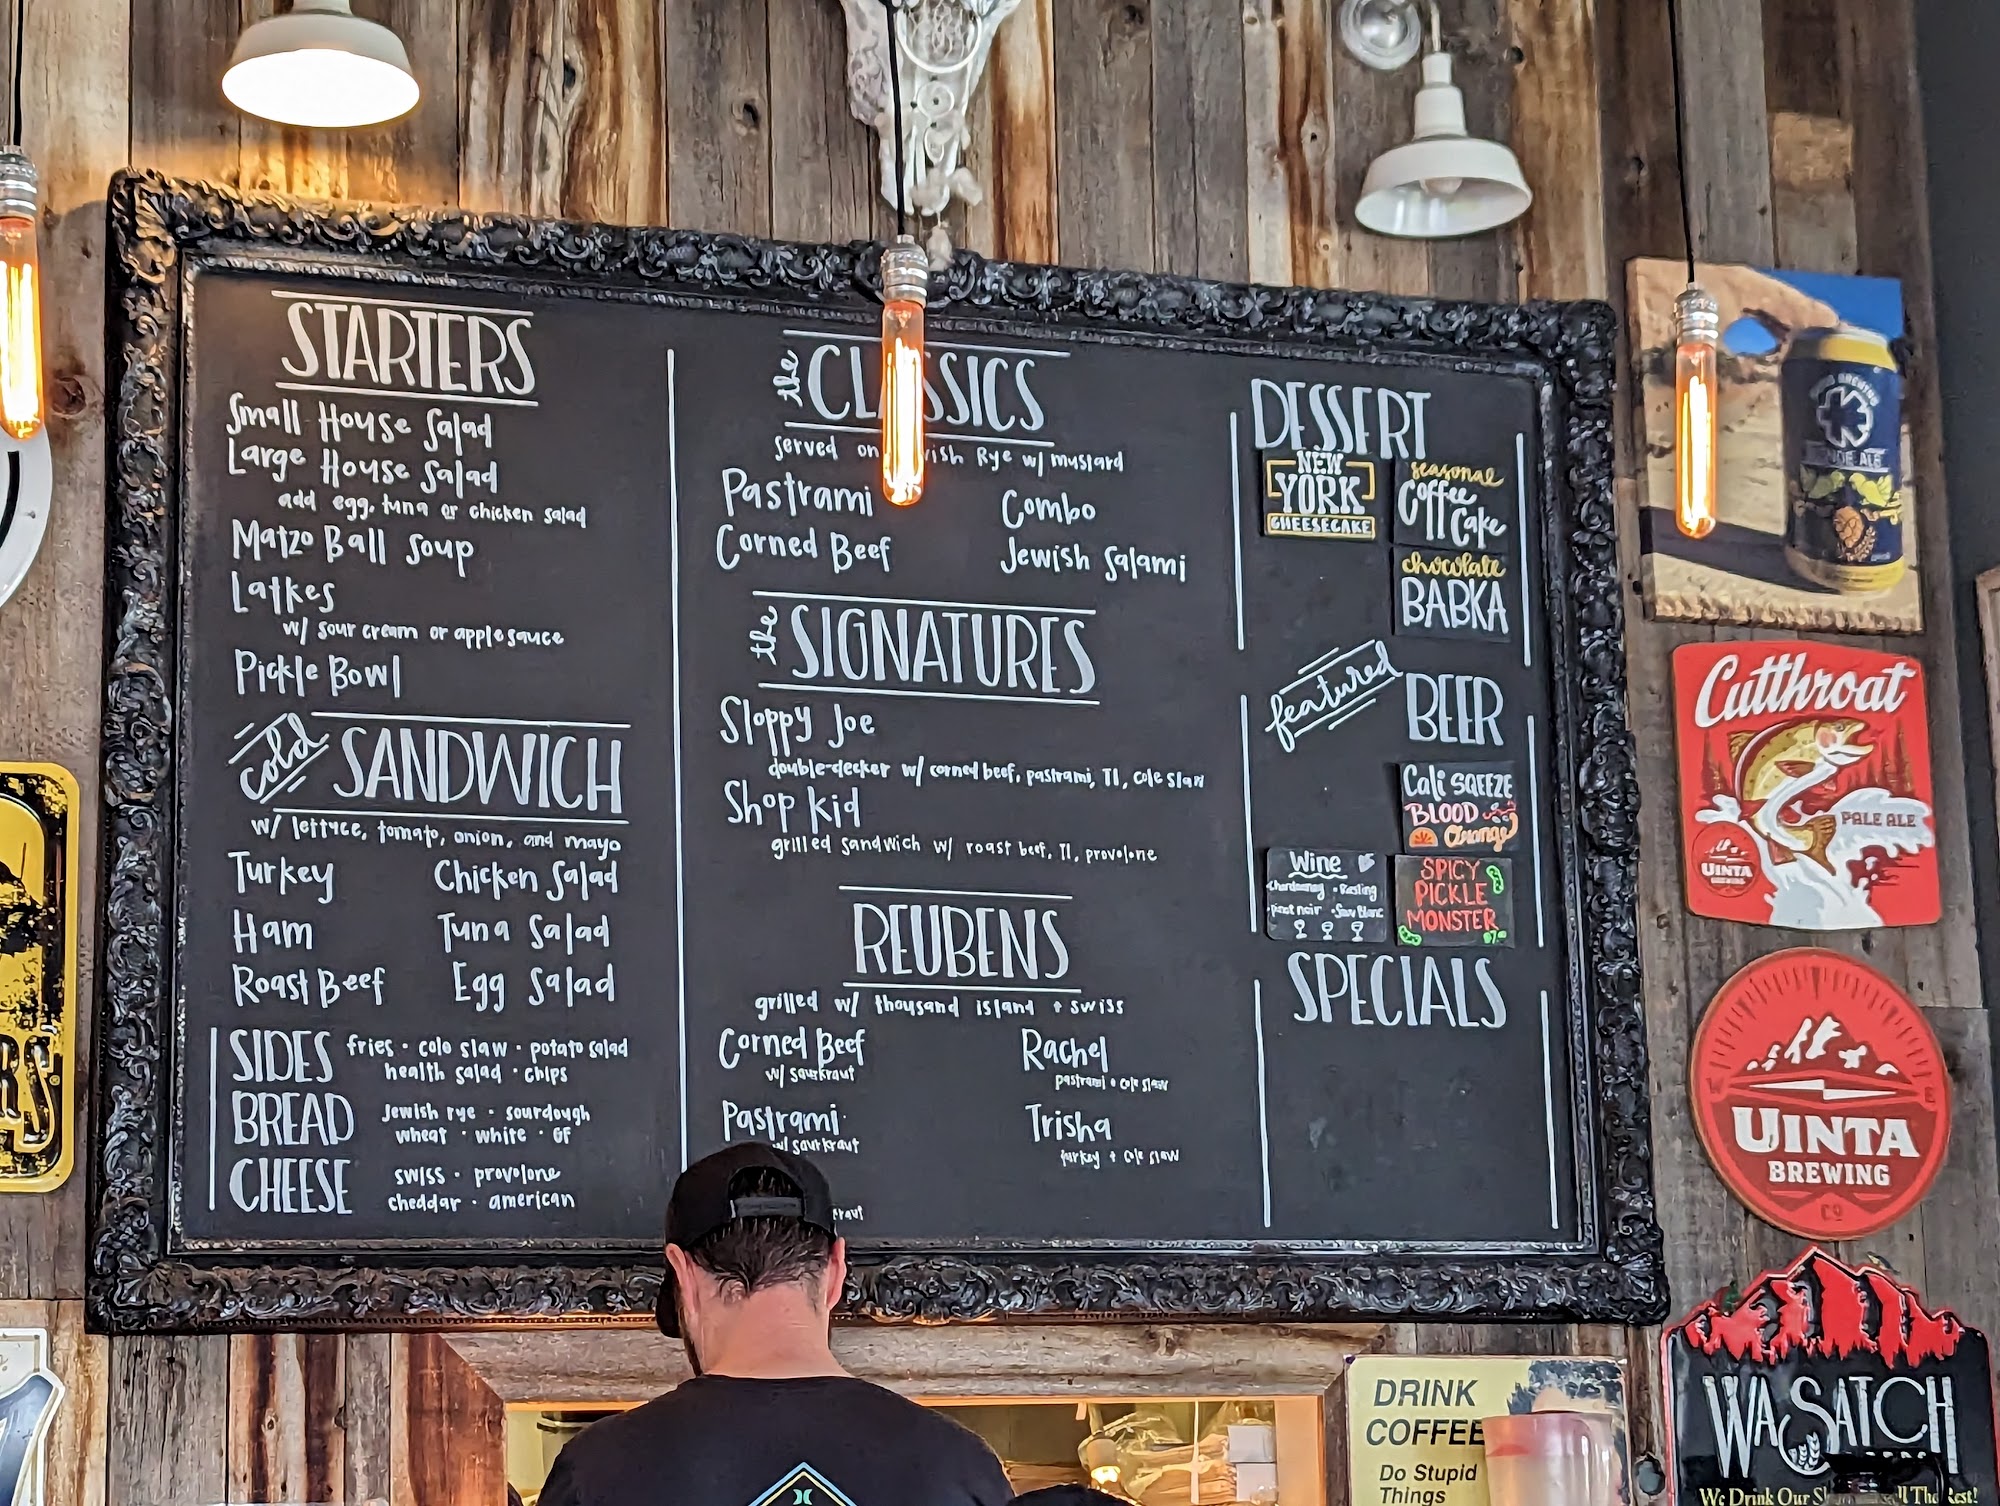 STARTERS
Small House Salad
Large House Salad
add egg, tuna or chicken salad
Matzo Ball Soup
Latkes
w/ sour cream or applesauce
Pickle Bowl
cold SANDWICH
w/ lettuce, tomato, onion, and mayo
Turkey Chicken Salad
Ham Tuna Salad
Roast Beef Egg Salad
SIDES fries · cole slaw · potato salad
health salad · chips
BREAD jewish rye · sourdough
wheat · white · GF
CHEESE swiss · provolone
cheddar · american
the CLASSICS
served on Rye w/ mustard
Pastrami Combo
Corned Beef Jewish Salami
the SIGNATURES
Sloppy Joe
double-decker w/ corned beef, pastrami, TI, cole slaw
Shop Kid
grilled sandwich w/ roast beef, TI, provolone
REUBENS
grilled w/ thousand island + swiss
Corned Beef Rachel
w/ saurkraut pastrami + cole slaw
Pastrami Trisha
w/ saurkraut turkey + cole slaw
DESSERT
NEW
YORK
CHEESECAKE
seasonal
Coffee
Cake
chocolate
BABKA
featured BEER
Cali SQEEZE
BLOOD
Orange
Wine
Chardonnay · Riesling
pinot noir · Sauv Blanc
SPICY
PICKLE
MONSTER
$7.00
SPECIALS
Cutthroat
PALE ALE
UINTA
BREWING
UINTA
BREWING
CO
WASATCH
We Drink Our
DRINK
COFFEE
Do Stupid
Things